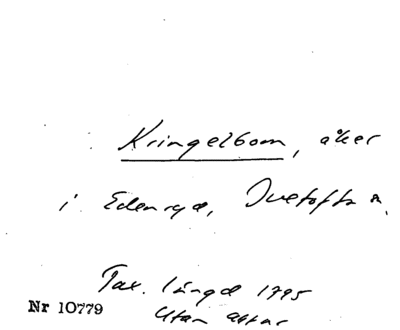 Kringelbom, åker
i Edenryd, Ivetofta s.
Tax. längd 1795
Nr 10779
Utan